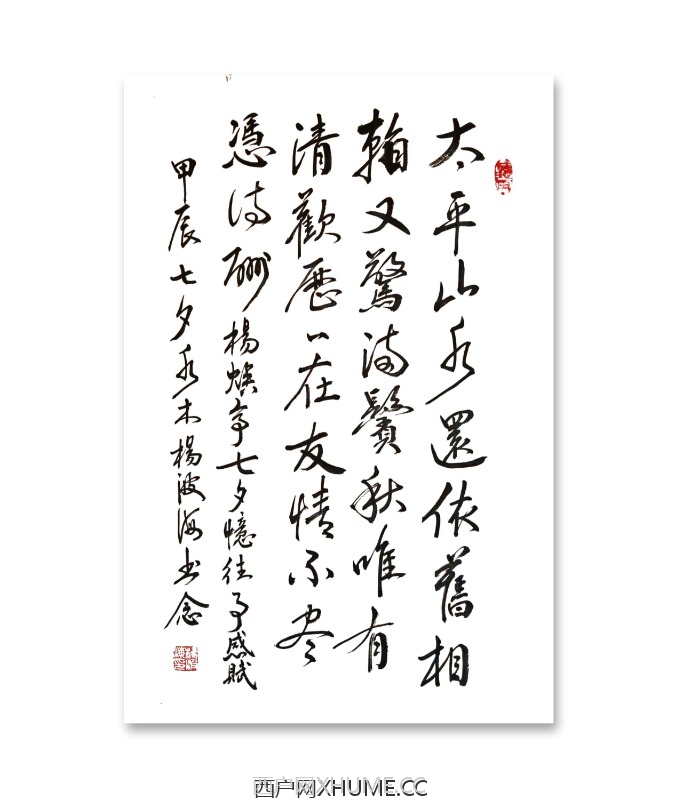 太平山水還依舊相
翰又驚满鬢秋唯有
清歡歷〻在友情不尽
憑诗酬 楊焕亭七夕憶往事感賦
甲辰七夕水木楊波海书念
西户网XHUME.CC